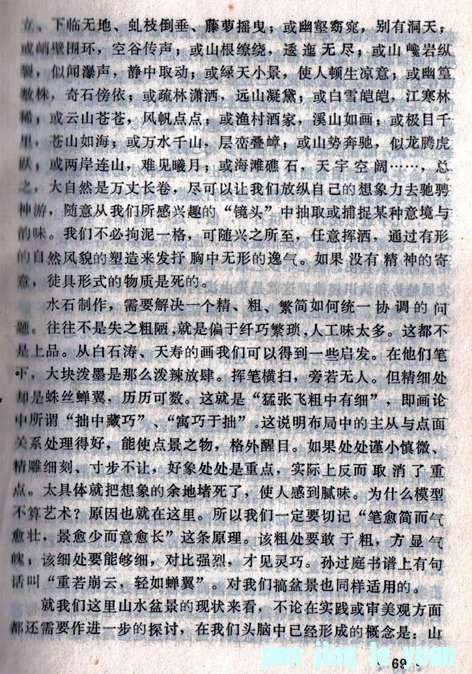 立、下临无地、虬枝倒垂、藤萝摇曳；或幽壑窈窕，别有洞天；
或峭壁围环，空谷传声；或山根缭绕，逶迤无尽；或山巉岩纵
裂，似闻瀑声，静中取动；或绿天小景，使人顿生凉意；或幽篁
数株，奇石傍依；或疏林潇洒，远山凝黛；或白雪皑皑，江寒林
稀；或云山苍苍，风帆点点；或渔村酒家，溪山如画；或极目千
里，苍山如海；或万水千山，层峦叠嶂；或山势奔驰，似龙腾虎
跃；或两岸连山，难见曦月；或海滩礁石，天宇空阔……，总
之，大自然是万丈长卷，尽可以让我们放纵自己的想象力去驰骋
神游，随意从我们所感兴趣的“镜头”中抽取或捕捉某种意境与
韵味。我们不必拘泥一格，可随兴之所至，任意挥洒，通过有形
的自然风貌的塑造来发抒胸中无形的逸气。如果没有精神的寄
意，徒具形式的物质是死的。
水石制作，需要解决一个精、粗、繁简如何统一协调的问
题。往往不是失之粗陋，就是偏于纤巧繁琐，人工味太多。这都不
是上品。从白石涛、天寿的画我们可以得到一些启发。在他们笔
下，大块泼墨是那么泼辣放肆。挥笔横扫，旁若无人。但精细处
却是蛛丝蝉翼，历历可数。这就是“猛张飞粗中有细”，即画论
中所谓“拙中藏巧”、“寓巧于拙”。这说明布局中的主从与点面
关系处理得好，能使点景之物，格外醒目。如果处处谨小慎微、
精雕细刻、寸步不让，好象处处是重点，实际上反而取消了重
点。太具体就把想象的余地堵死了，使人感到腻味。为什么模型
不算艺术？原因也就在这里。所以我们一定要切记“笔愈简而气
愈壮，景愈少而意愈长”这条原理。该粗处要敢于粗，方显气
魄，该细处要能够细，对比强烈，才见灵巧。孙过庭书谱上有句
话叫“重若崩云，轻如蝉翼”。对我们搞盆景也同样适用的。
就我们这里山水盆景的现状来看，不论在实践或审美观方面
都还需要作进一步的探讨，在我们头脑中已经形成的概念是：山
· 69 ·
pen jing le yuan